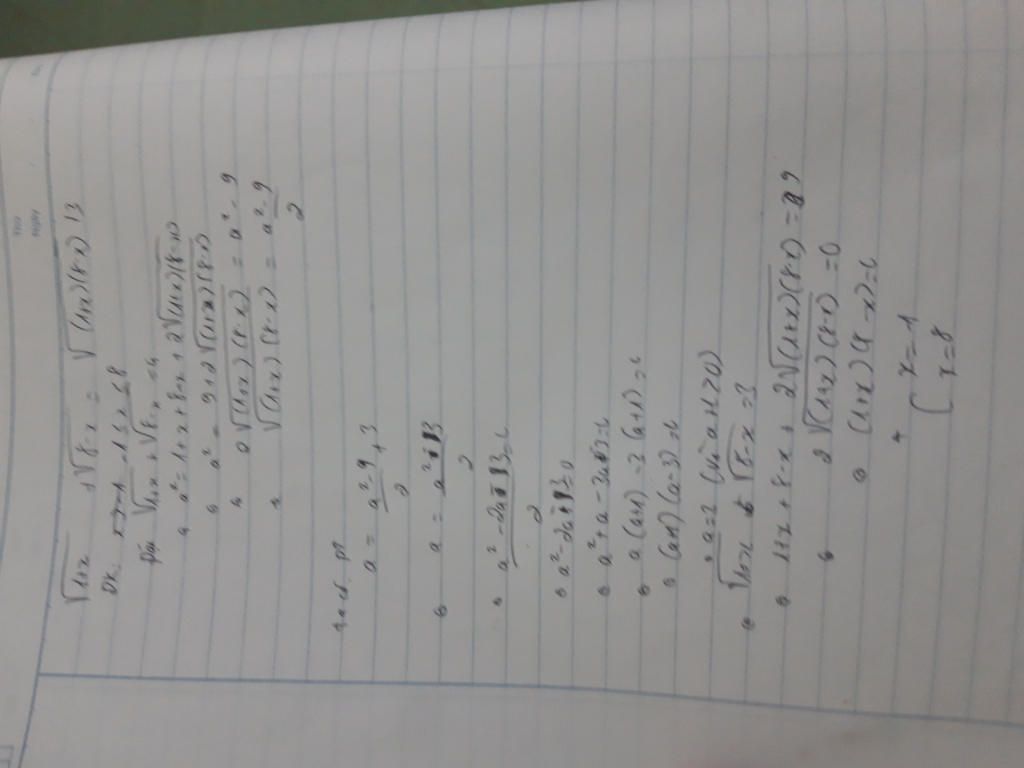 √1+x + √8-x = √(1+x)(8-x) + 3
ĐK: -1 ≤ x ≤ 8
Đặt √1+x + √8-x = a
a² = 1+x+8-x+2√(1+x)(8-x)
a² = 9+2√(1+x)(8-x)
2√(1+x)(8-x) = a²-9
√(1+x)(8-x) = a²-9 / 2
pt
a = a²-9 / 2 + 3
a = a²-3 / 2
a²-2a-3 / 2 = 0
a²-2a-3=0
a²+a-3a-3=0
a(a+1)-3(a+1)=0
(a+1)(a-3)=0
a=3 (a≥0)
√1+x + √8-x = 3
1+x+8-x+2√(1+x)(8-x) = 9
2√(1+x)(8-x) = 0
(1+x)(8-x)=0
x=-1
x=8